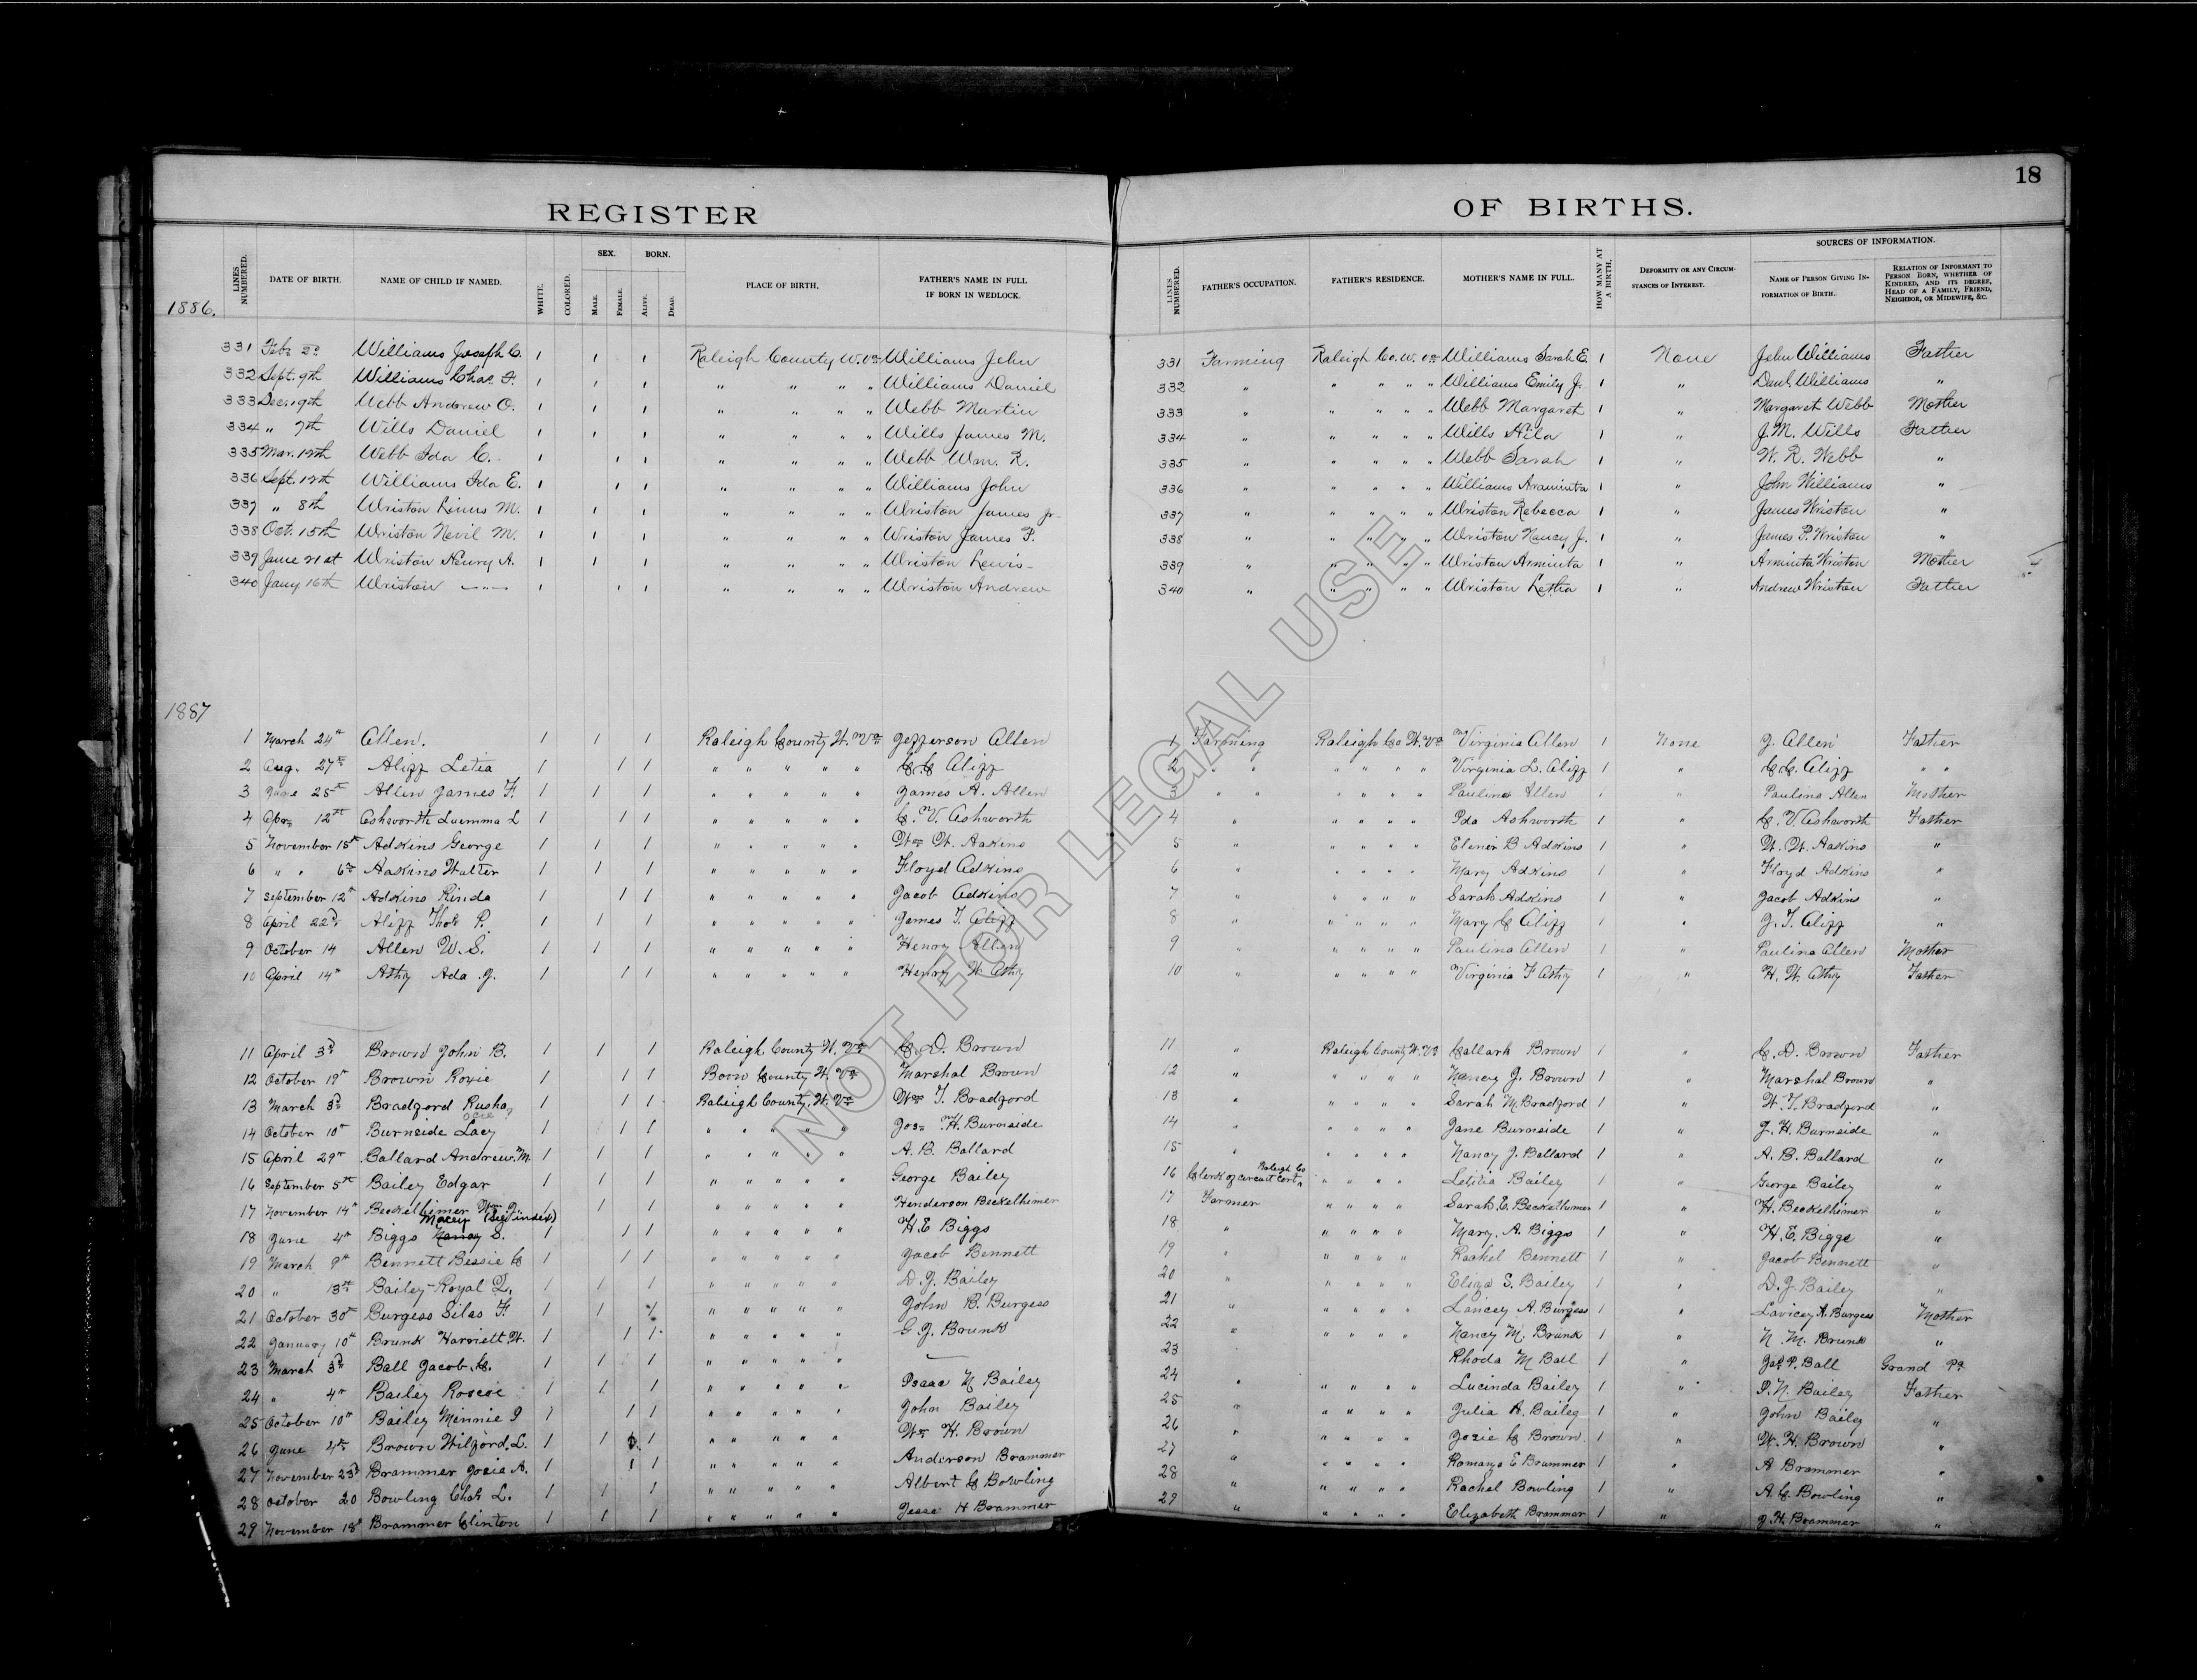 18
REGISTER OF BIRTHS.
LINES NUMBERED. DATE OF BIRTH. NAME OF CHILD IF NAMED. WHITE. COLORED. SEX. MALE. FEMALE. BORN. ALIVE. DEAD. PLACE OF BIRTH. FATHER'S NAME IN FULL IF BORN IN WEDLOCK. LINES NUMBERED. FATHER'S OCCUPATION. FATHER'S RESIDENCE. MOTHER'S NAME IN FULL. HOW MANY AT A BIRTH. DEFORMITY OR ANY CIRCUMSTANCES OF INTEREST. SOURCES OF INFORMATION. NAME OF PERSON GIVING INFORMATION OF BIRTH. RELATION OF INFORMANT TO PERSON BORN, WHETHER OF KINDRED, AND ITS DEGREE, HEAD OF A FAMILY, FRIEND, NEIGHBOR, OR MIDWIFE, &C.
1886.
331 Williams Joseph C. 1 1 1 Raleigh County W. Va Williams John 331 Farming Raleigh Co. W. Va Williams Sarah E. 1 None John Williams Father
332 Sept. 9th Williams Chas. F. 1 1 1 " " " " Williams Daniel 332 " " " " " Williams Emily J. 1 " Danl. Williams "
333 Dec. 19th Webb Andrew O. 1 1 1 " " " " Webb Martin 333 " " " " " Webb Margaret 1 " Margaret Webb Mother
334 " 7th Wills Daniel 1 1 1 " " " " Wills James M. 334 " " " " " Wills Hila 1 " J. M. Wills Father
335 Mar. 12th Webb Ida C. 1 1 1 " " " " Webb Wm. R. 335 " " " " " Webb Sarah 1 " W. R. Webb "
336 Sept. 12th Williams Ida E. 1 1 1 " " " " Williams John 336 " " " " " Williams Araminta 1 " John Williams "
337 " 8th Wriston Linus M. 1 1 1 " " " " Wriston James Jr. 337 " " " " " Wriston Rebecca 1 " James Wriston "
338 Oct. 15th Wriston Nevil M. 1 1 1 " " " " Wriston James P. 338 " " " " " Wriston Nancy J. 1 " James P. Wriston "
339 June 21st Wriston Henry A. 1 1 1 " " " " Wriston Lewis 339 " " " " " Wriston Arminta 1 " Arminta Wriston Mother
340 Jany 16th Wriston — " — 1 1 1 " " " " Wriston Andrew 340 " " " " " Wriston Letha 1 " Andrew Wriston Father
1887
1 March 24th Allen. 1 1 1 Raleigh County W. Va Jefferson Allen 1 Farming Raleigh Co W. Va Virginia Allen 1 None J. Allen Father
2 Aug. 27th Aliff Letia 1 1 1 " " " " " C. C. Aliff 2 " " " " " " Virginia L. Aliff 1 " C. C. Aliff " "
3 June 25th Allen James F. 1 1 1 " " " " " James A. Allen 3 " " " " " " Paulina Allen 1 " Paulina Allen Mother
4 Apr. 12th Ashworth Luemma L 1 1 1 " " " " " C. V. Ashworth 4 " " " " " Ida Ashworth 1 " C. V. Ashworth Father
5 November 15th Adkins George 1 1 1 " " " " " Wm W. Adkins 5 " " " " " Elener B Adkins 1 " W. W. Adkins "
6 " " 6th Adkins Walter 1 1 1 " " " " " Floyd Adkins 6 " " " " " Mary Adkins 1 " Floyd Adkins "
7 September 12th Adkins Rinda 1 1 1 " " " " " Jacob Adkins 7 " " " " " Sarah Adkins 1 " Jacob Adkins "
8 April 22d Aliff Thos P. 1 1 1 " " " " " James T. Aliff 8 " " " " " Mary C Aliff 1 " J. T. Aliff "
9 October 14 Allen W. S. 1 1 1 " " " " " Henry Allen 9 " " " " " Paulina Allen 1 " Paulina Allen Mother
10 April 14th Athy Ada J. 1 1 1 " " " " " Henry W Athy 10 " " " " " Virginia F Athy 1 " H. W. Athy Father
11 April 3d Brown John B. 1 1 1 Raleigh County W. Va C. D. Brown 11 " Raleigh County W. Va Callarh Brown 1 " C. D. Brown Father
12 October 19th Brown Roxie 1 1 1 Boon County W. Va Marshal Brown 12 " " " " " Nancy J. Brown 1 " Marshal Brown "
13 March 3d Bradford 1 1 1 Raleigh County. W. Va Wm T. Bradford 13 " " " " " Sarah M Bradford 1 " W. T. Bradford "
14 October 10th Burnside Lacy 1 1 1 " " " " " Jos. H. Burnside 14 " " " " " Jane Burnside 1 " J. H. Burnside "
15 April 29th Ballard Andrew. M. 1 1 1 " " " " " A. B. Ballard 15 " " " " " Nancy J. Ballard 1 " A. B. Ballard "
16 September 5th Bailey Edgar 1 1 1 " " " " " George Bailey 16 Clerk of circuit Cort Raleigh Co " " " " Letitia Bailey 1 " George Bailey "
17 November 14th Beckelhimer Wm J. (See index) 1 1 " " " " " Henderson Beckelhimer 17 Farmer " " " " Sarah. E. Beckelhimer 1 " H. Beckelhimer "
18 June 4th Biggs Macey S. 1 1 1 " " " " " H. E Biggs 18 " " " " Mary. A. Biggs 1 " H. E. Biggs "
19 March 9th Bennett Bessie C 1 1 1 " " " " " Jacob Bennett 19 " " " " " Rachel Bennett 1 " Jacob Bennett "
20 " 13th Bailey Royal L. 1 1 1 " " " " " D. J. Bailey 20 " " " " " Eliza S. Bailey 1 " D. J. Bailey "
21 October 30th Burgess Silas F. 1 1 1 " " " " " John B. Burgess 21 " " " " " A. Burgess 1 " Lavicey A. Burgess Mother
22 January 10th Brunk Harriett. W. 1 1 1 " " " " " G. J. Brunk 22 " " " " " Nancy M. Brunk 1 " N. M. Brunk "
23 March 3d Ball Jacob. C. 1 1 1 " " " " " — 23 Rhoda M Ball 1 " Jas. P. Ball Grand Pa
24 " 4th Bailey Roscoe 1 1 1 " " " " " Isaac N Bailey 24 " " " " " Lucinda Bailey 1 " I. N. Bailey Father
25 October 10th Bailey Minnie J 1 1 1 " " " " " John Bailey 25 " " " " " Julia A. Bailey 1 " John Bailey "
26 June 4th Brown Wilford. L. 1 1 1 " " " " " Wm H. Brown 26 " " " " " Josie C Brown 1 " W. H. Brown "
27 November 23d Brammer Josie A. 1 1 1 " " " " " Anderson Brammer 27 " " " " " E Brammer 1 " A Brammer "
28 October 20 Bowling Chas L. 1 1 1 " " " " " Albert C Bowling 28 " " " " " Rachel Bowling 1 " A. C. Bowling "
29 November 18th Brammer Clinton 1 1 1 " " " " " Jesse H Brammer 29 " " " " " Elizabeth Brammer 1 " J. H. Brammer "
NOT FOR LEGAL USE